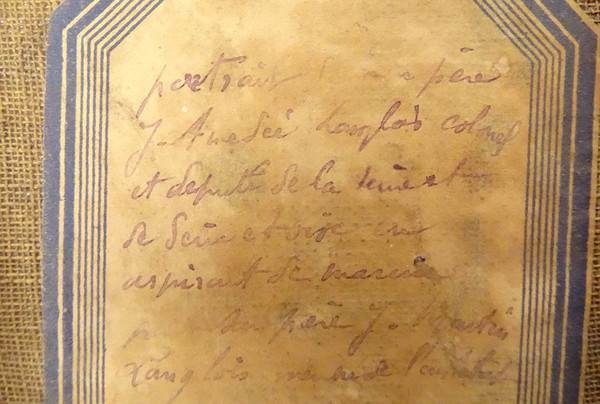 portrait père
J. Amedée Langlois colonel
et deputé de la seine et
de seine et oise en
aspirant de marine
par son père J. Martin
Langlois membre de l'institut